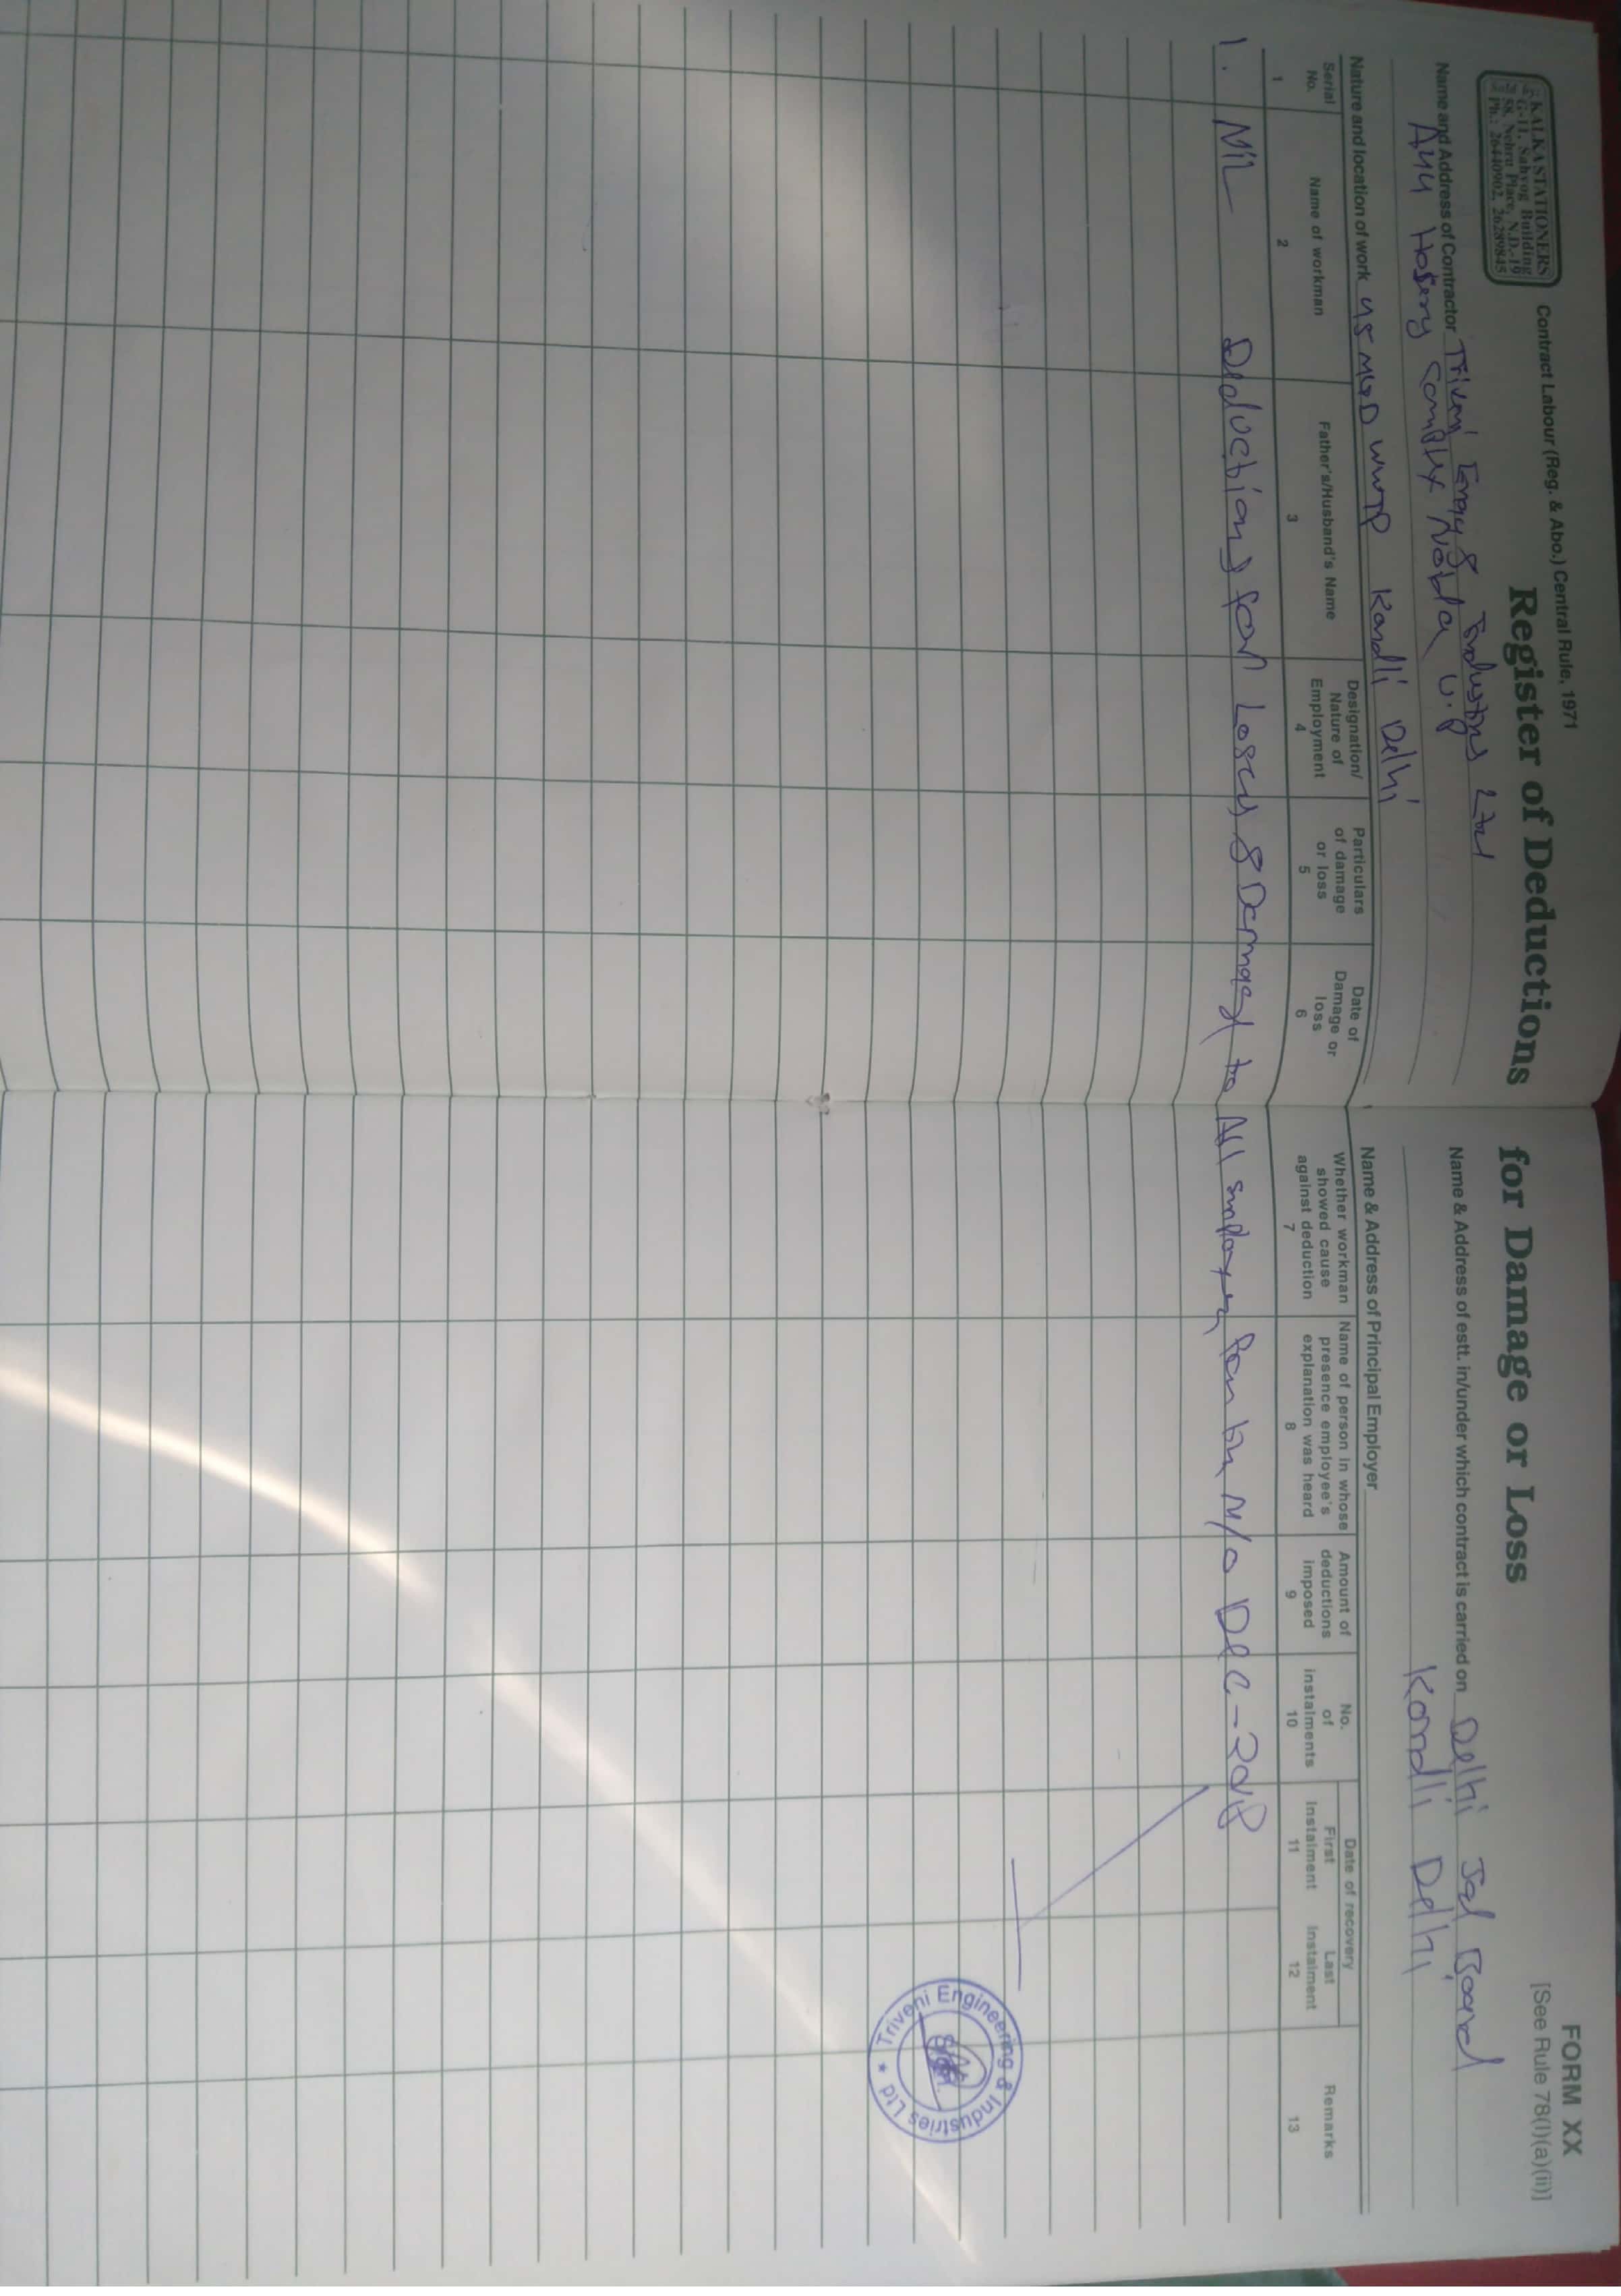 KALKA STATIONERS
G-11, Sahyog Building
58, Nehru Place, N.D.-19
Ph.: 26440902, 26289845
Contract Labour (Reg. & Abo.) Central Rule, 1971
FORM XX
[See Rule 78(I)(a)(ii)]
Register of Deductions for Damage or Loss
Name and Address of Contractor Triveni Engg & Industries Ltd
A44 Hosiery Complex Noida U.P
Name & Address of estt. in/under which contract is carried on Delhi Jal Board
Kondli Delhi
Nature and location of work 45 MGD WWTP Kondli Delhi
Name & Address of Principal Employer
Serial No.
Name of workman
Father's/Husband's Name
Designation/ Nature of Employment
Particulars of damage or loss
Date of Damage or loss
Whether workman showed cause against deduction
Name of person in whose presence employee's explanation was heard
Amount of deductions imposed
No. of instalments
Date of recovery
First Instalment
Last Instalment
Remarks
1 2 3 4 5 6 7 8 9 10 11 12 13
1. NIL Deductions for Losses & Damages to All employees for the M/o Dec-2018
Triveni Engineering & Industries Ltd